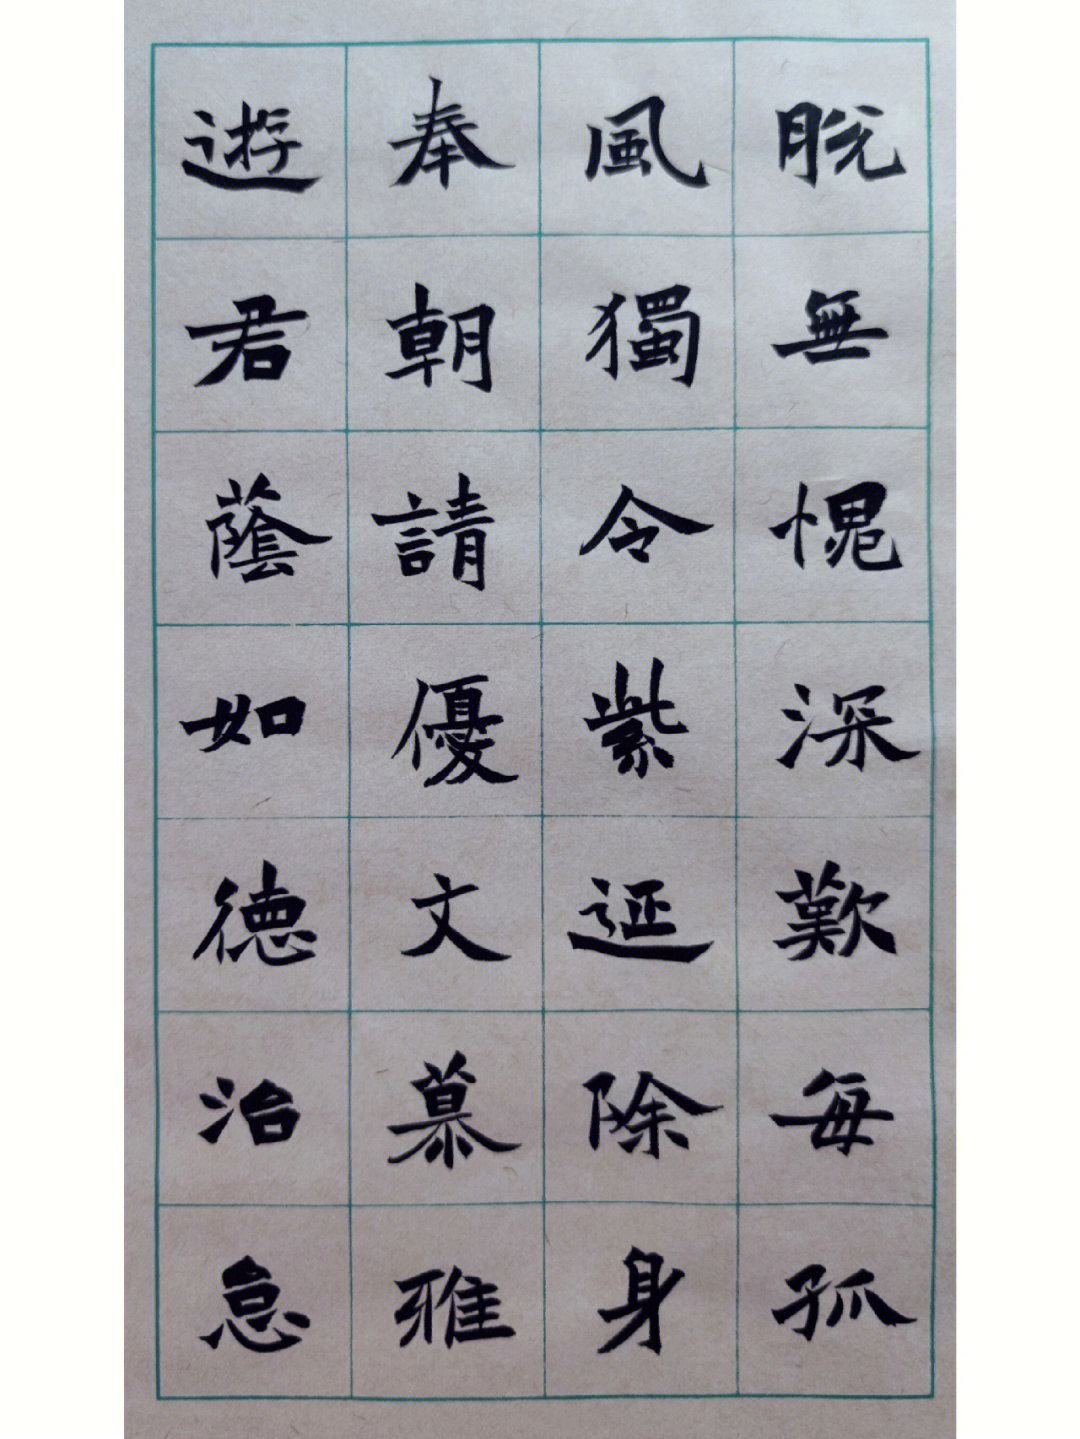 脱無愧深歎每孤
風獨令紫逕除身
奉朝請優文慕雅
遊君蔭如德治怠